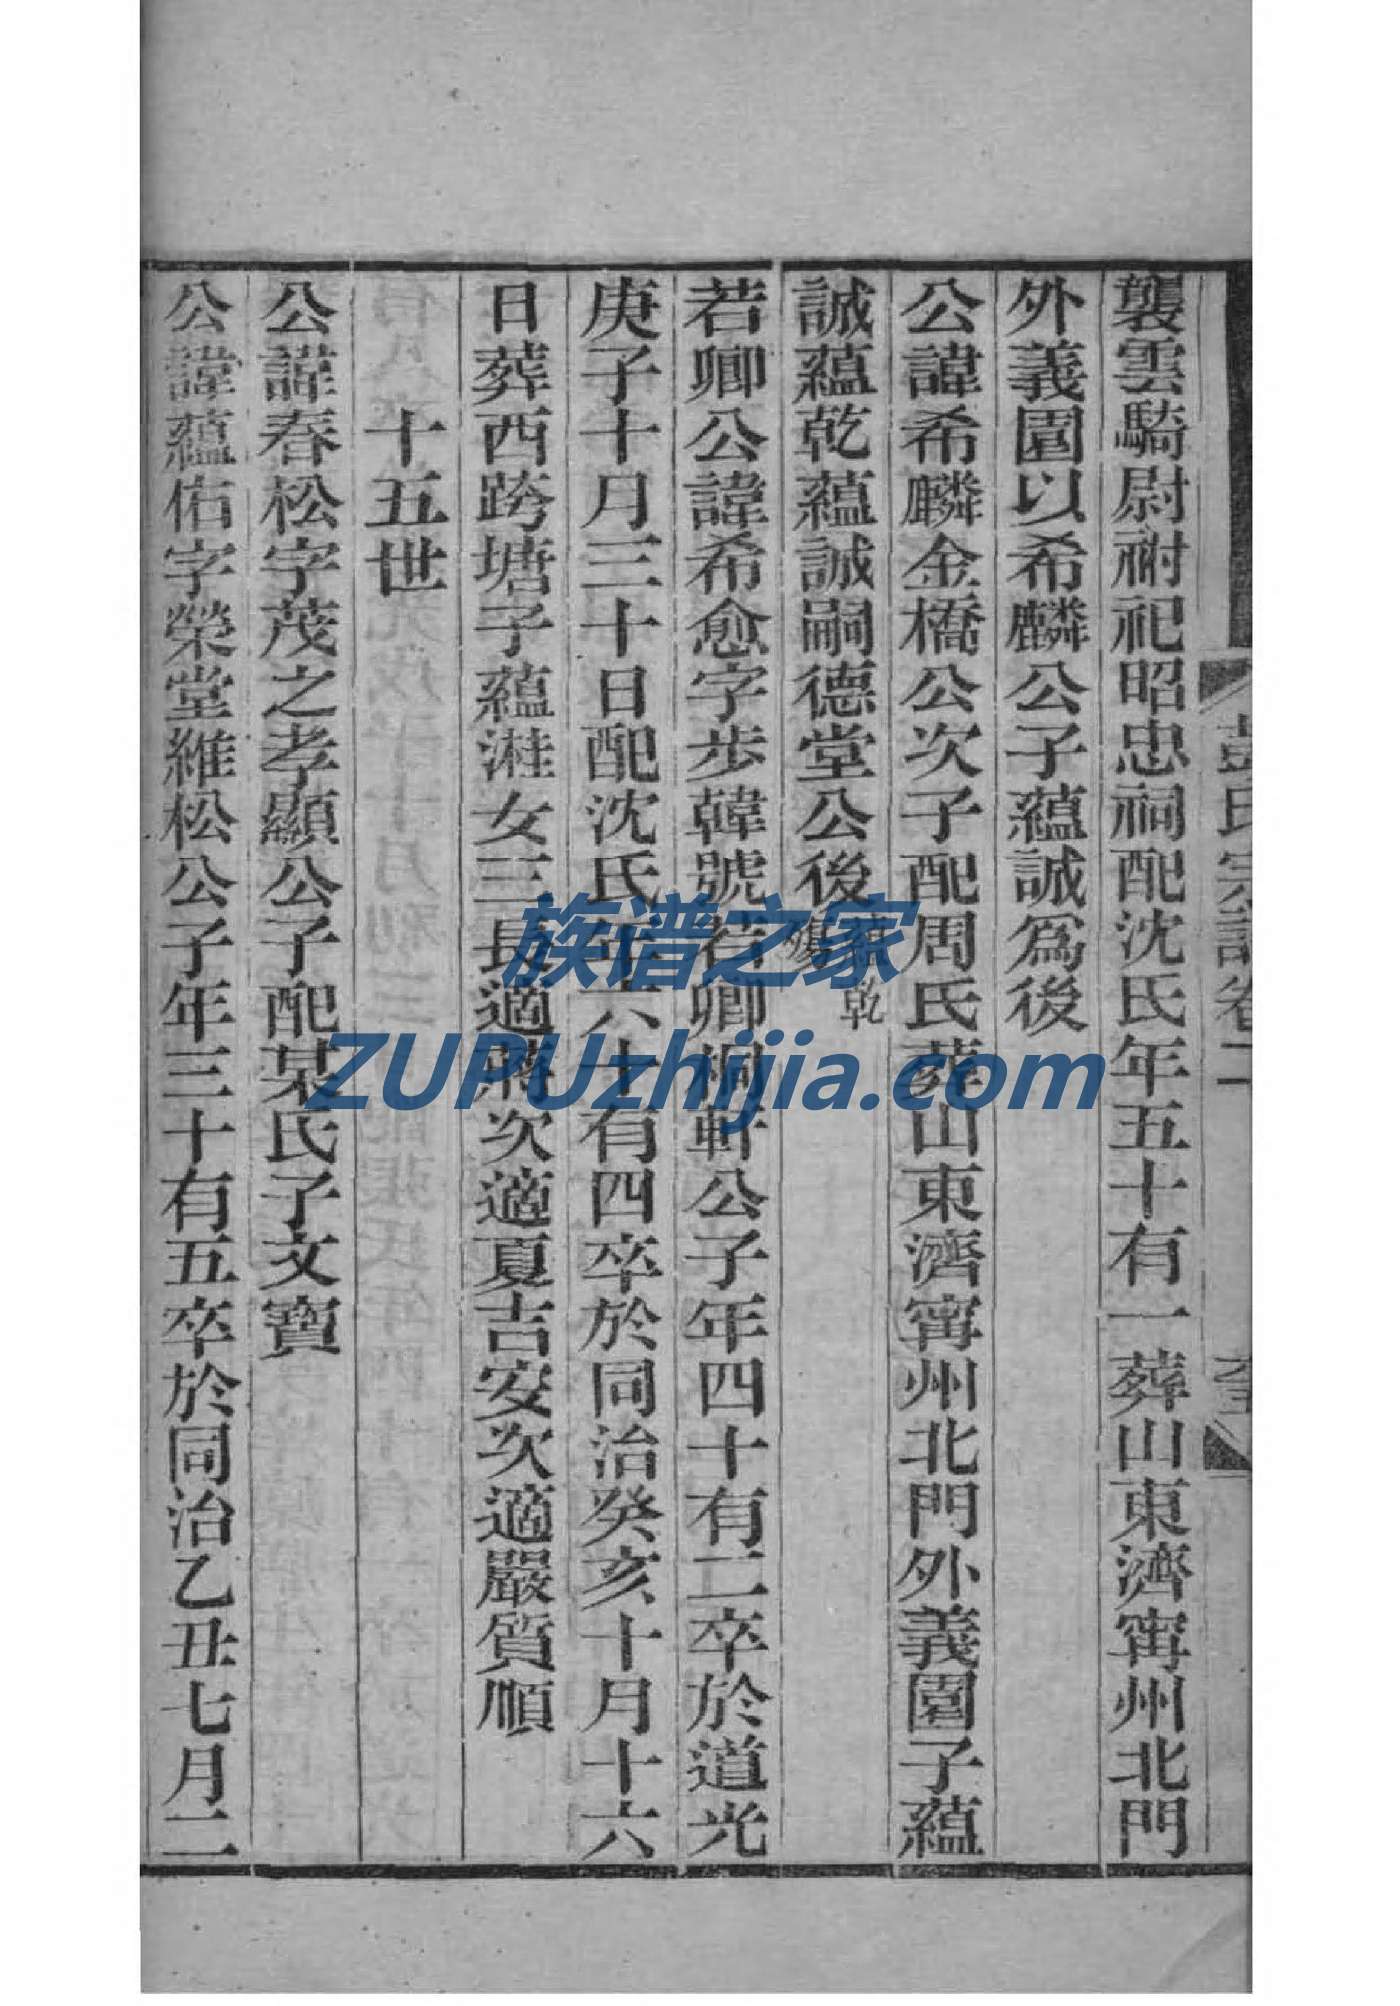 彭氏宗譜卷二
襲雲騎尉祔祀昭忠祠配沈氏年五十有一葬山東濟甯州北門
外義園以希麟公子蘊誠爲後
公諱希麟金橋公次子配周氏葬山東濟甯州北門外義園子蘊
誠蘊乾蘊誠嗣德堂公後蘊乾
殤
若卿公諱希愈字步韓號若卿桐軒公子年四十有二卒於道光
庚子十月三十日配沈氏年六十有四卒於同治癸亥十月十六
日葬西跨塘子蘊溎女三長適蔣次適夏吉安次適嚴質順
十五世
公諱春松字茂之孝顯公子配某氏子文寶
公諱蘊佑字榮堂維松公子年三十有五卒於同治乙丑七月二
族谱之家
ZUPUzhijia.com